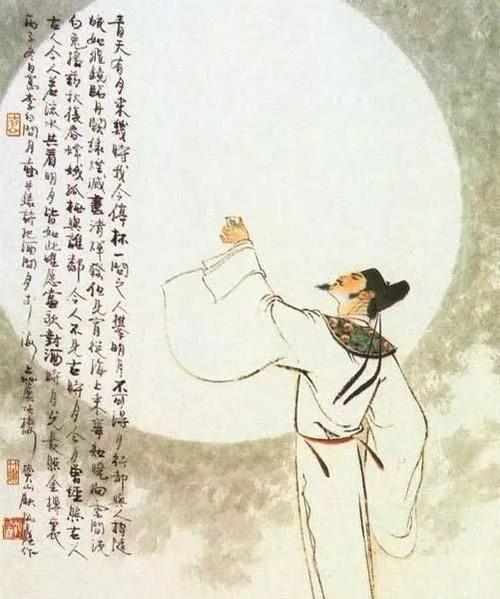 青天有月來幾時我今停杯一問之人攀明月不可得月行却與人相隨
皎如飛鏡臨丹闕綠煙滅盡清輝發但見宵從海上來寧知曉向雲間沒
白兔搗藥秋復春嫦娥孤栖與誰鄰今人不見古時月今月曾經照古人
古人今人若流水共看明月皆如此唯愿當歌對酒時月光長照金樽裏
丙子冬日寫李白問月把酒問月海上